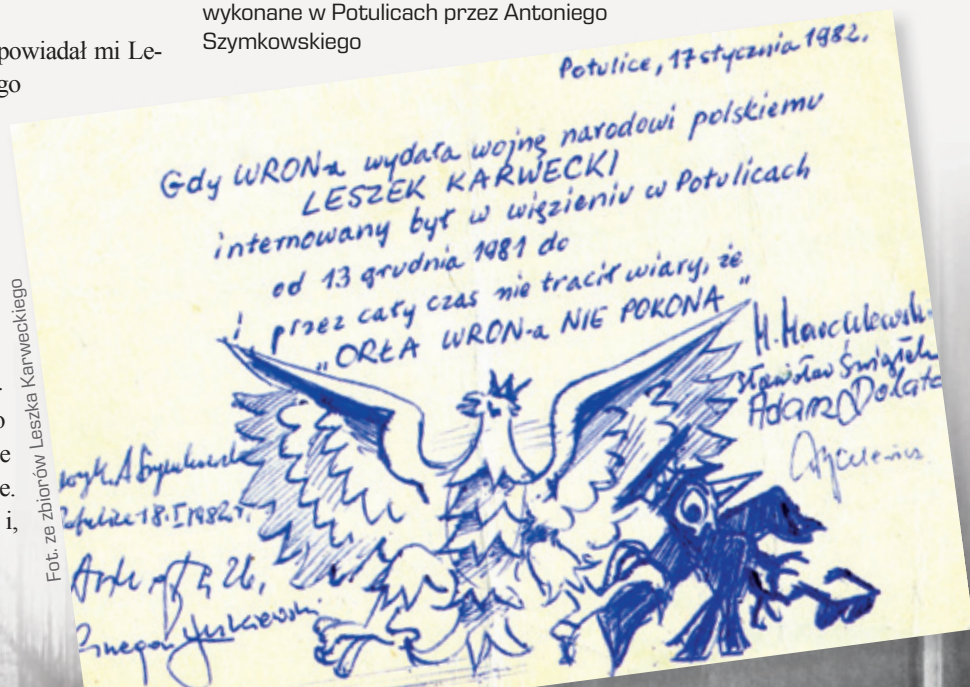 wykonane w Potulicach przez Antoniego
Szymkowskiego
powiadał mi Le-
go
o
e
e.
i,
Fot. ze zbiorów Leszka Karweckiego
Potulice, 17 stycznia 1982.
Gdy WRON-a wydała wojnę narodowi polskiemu
LESZEK KARWECKI
internowany był w więzieniu w Potulicach
od 13 grudnia 1981 do
i przez cały czas nie tracił wiary, że
„ORŁA WRON-a NIE POKONA"
Stanisław Świątek
Adam Dolata
18.I.1982r.